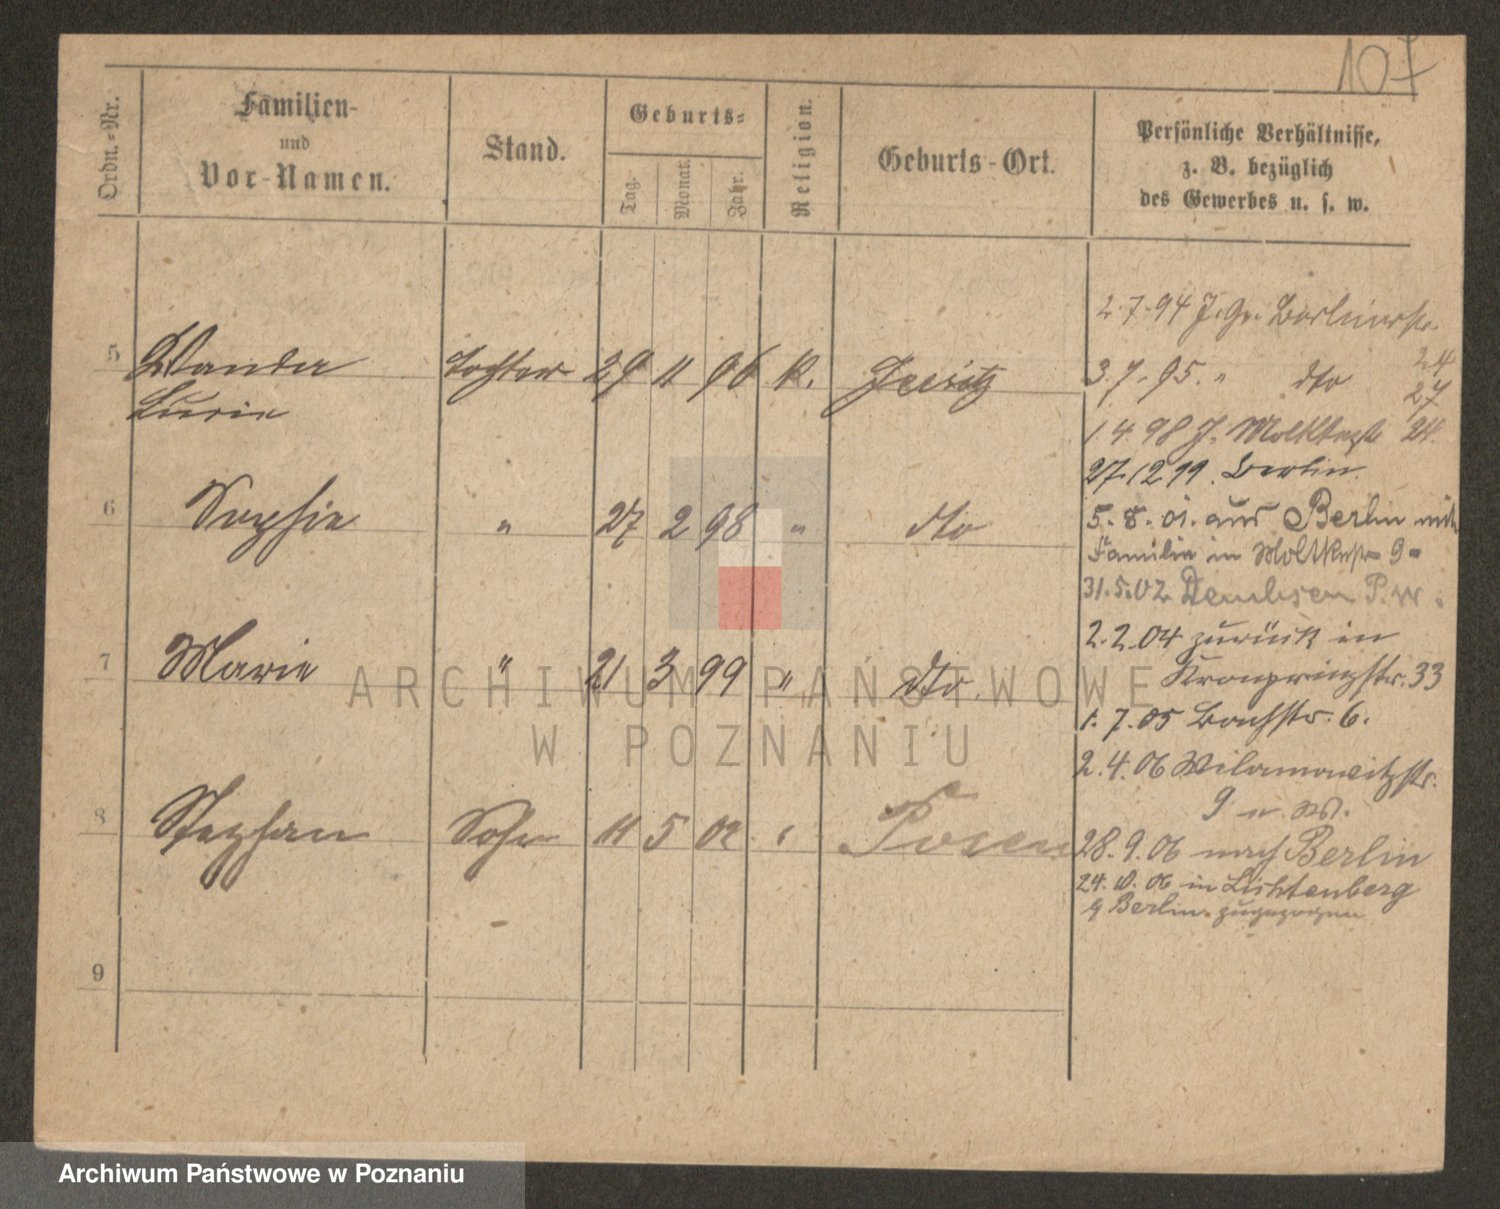 107
Ordn.-Nr.
Familien-
und
Vor-Namen.
Stand.
Geburts-
Tag.
Monat.
Jahr.
Religion.
Geburts-Ort.
Persönliche Verhältnisse,
z. B. bezüglich
des Gewerbes u. s. w.
2.7.94 J. Gr. Berlinerstr.
24
5 Wanda Tochter 29 11 96 K. Jersitz
3.7.95. " dto 27
Lucie
1.4.98 J. Moltkestr 24.
27.12.99. Berlin.
6 Sophie " 27 2 98 " dto
5.8.01. aus Berlin mit
Familie in Moltkestr 9-
31.5.02 Dembsen P.W.
2.2.04 zurück in
7 Marie " 21 3 99 " dto.
Kronprinzstr. 33
1.7.05 Bachstr. 6.
2.4.06 Wilamowitzstr.
9 u. W.
8 Stephan Sohn 11 5 02 " Posen
28.9.06 nach Berlin
24.10.06 in Lichtenberg
b Berlin zugezogen
9
ARCHIWUM PAŃSTWOWE
W POZNANIU
Archiwum Państwowe w Poznaniu